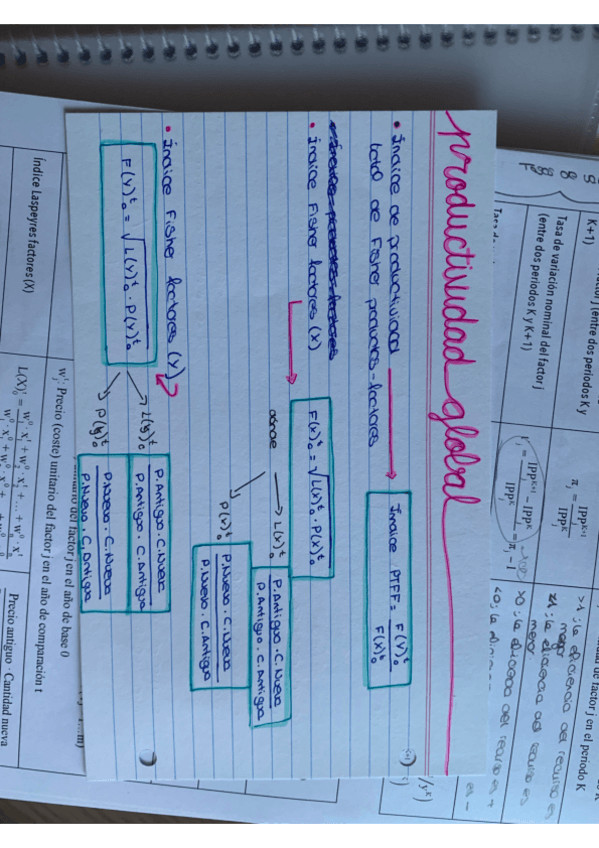 productividad global
• Índice de productividad total de Fisher productos-factores → Índice PTFF = F(Y)₀ᵗ / F(X)₀ᵗ
• Índice Fisher factores (X) → F(X)₀ᵗ = √L(X)₀ᵗ · P(X)₀ᵗ
dónde
→ L(X)₀ᵗ P.Antiguo · C.Nueva / P.Antiguo · C.Antigua
→ P(X)₀ᵗ P.Nuevo · C.Nueva / P.Nuevo · C.Antigua
• Índice Fisher factores (Y)
F(Y)₀ᵗ = √L(Y)₀ᵗ · P(Y)₀ᵗ
→ L(y)₀ᵗ P.Antiguo · C.Nueva / P.Antigua · C.Antigua
→ P(y)₀ᵗ P.Nuevo · C.Nueva / P.Nuevo · C.Antigua
K+1)
Tasa de variación nominal del factor j
(entre dos periodos K y K+1)
πⱼ = IPPⱼᴷ⁺¹ / IPPⱼᴷ
IPPⱼᴷ⁺¹ − IPPⱼᴷ / IPPⱼᴷ = πⱼ − 1
>1; la eficiencia del recurso es
mayor
<1; la eficiencia del recurso es
menor
>0; la eficiencia del recurso es +
wⱼᵗ: Precio (coste) unitario del factor j en el año de base 0
unitario del factor j en el año de comparación t
Índice Laspeyres factores (X)
Precio antiguo · Cantidad nueva